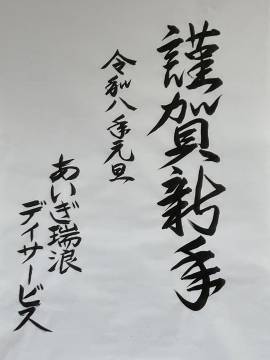 謹賀新年
令和八年元旦
あいぎ瑞浪
デイサービス